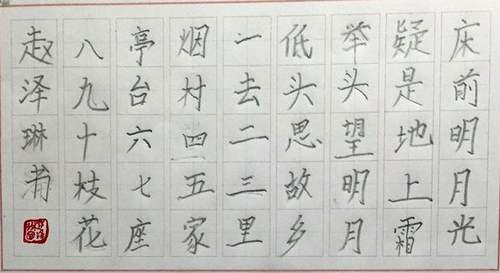 床前明月光
疑是地上霜
举头望明月
低头思故乡
一去二三里
烟村四五家
亭台六七座
八九十枝花
赵泽琳书